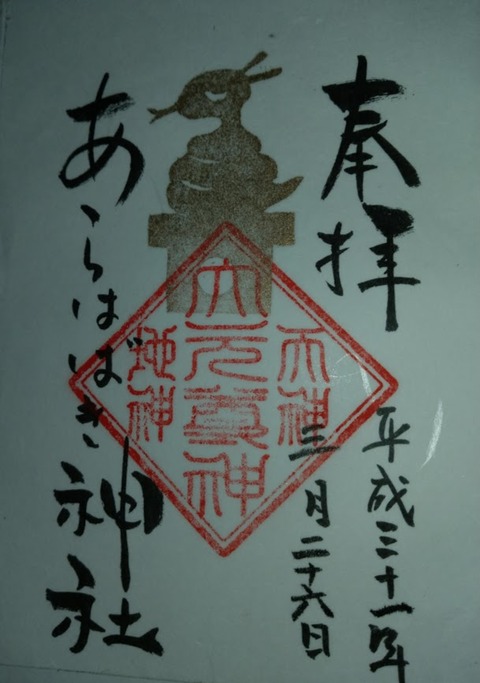 奉拝
平成三十一年
三月二十六日
天神
大元尊神
地神
あらはばき神社